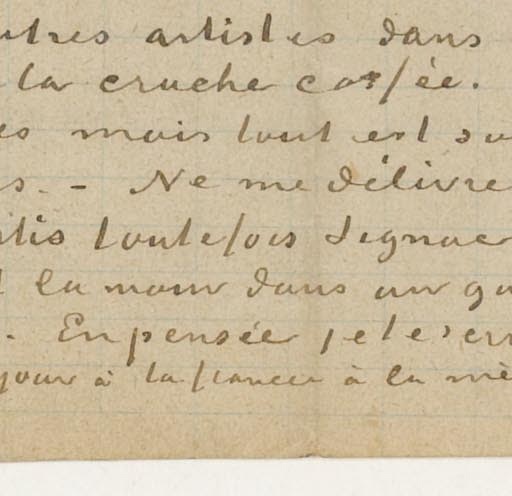 utres artistes dans
la cruche cassée.
es mais tout est su
s. - Ne me délivre
itis toutefois Signac
la mour dans un qu
. En pensée je te serr
jour à ta fiancée à la mè